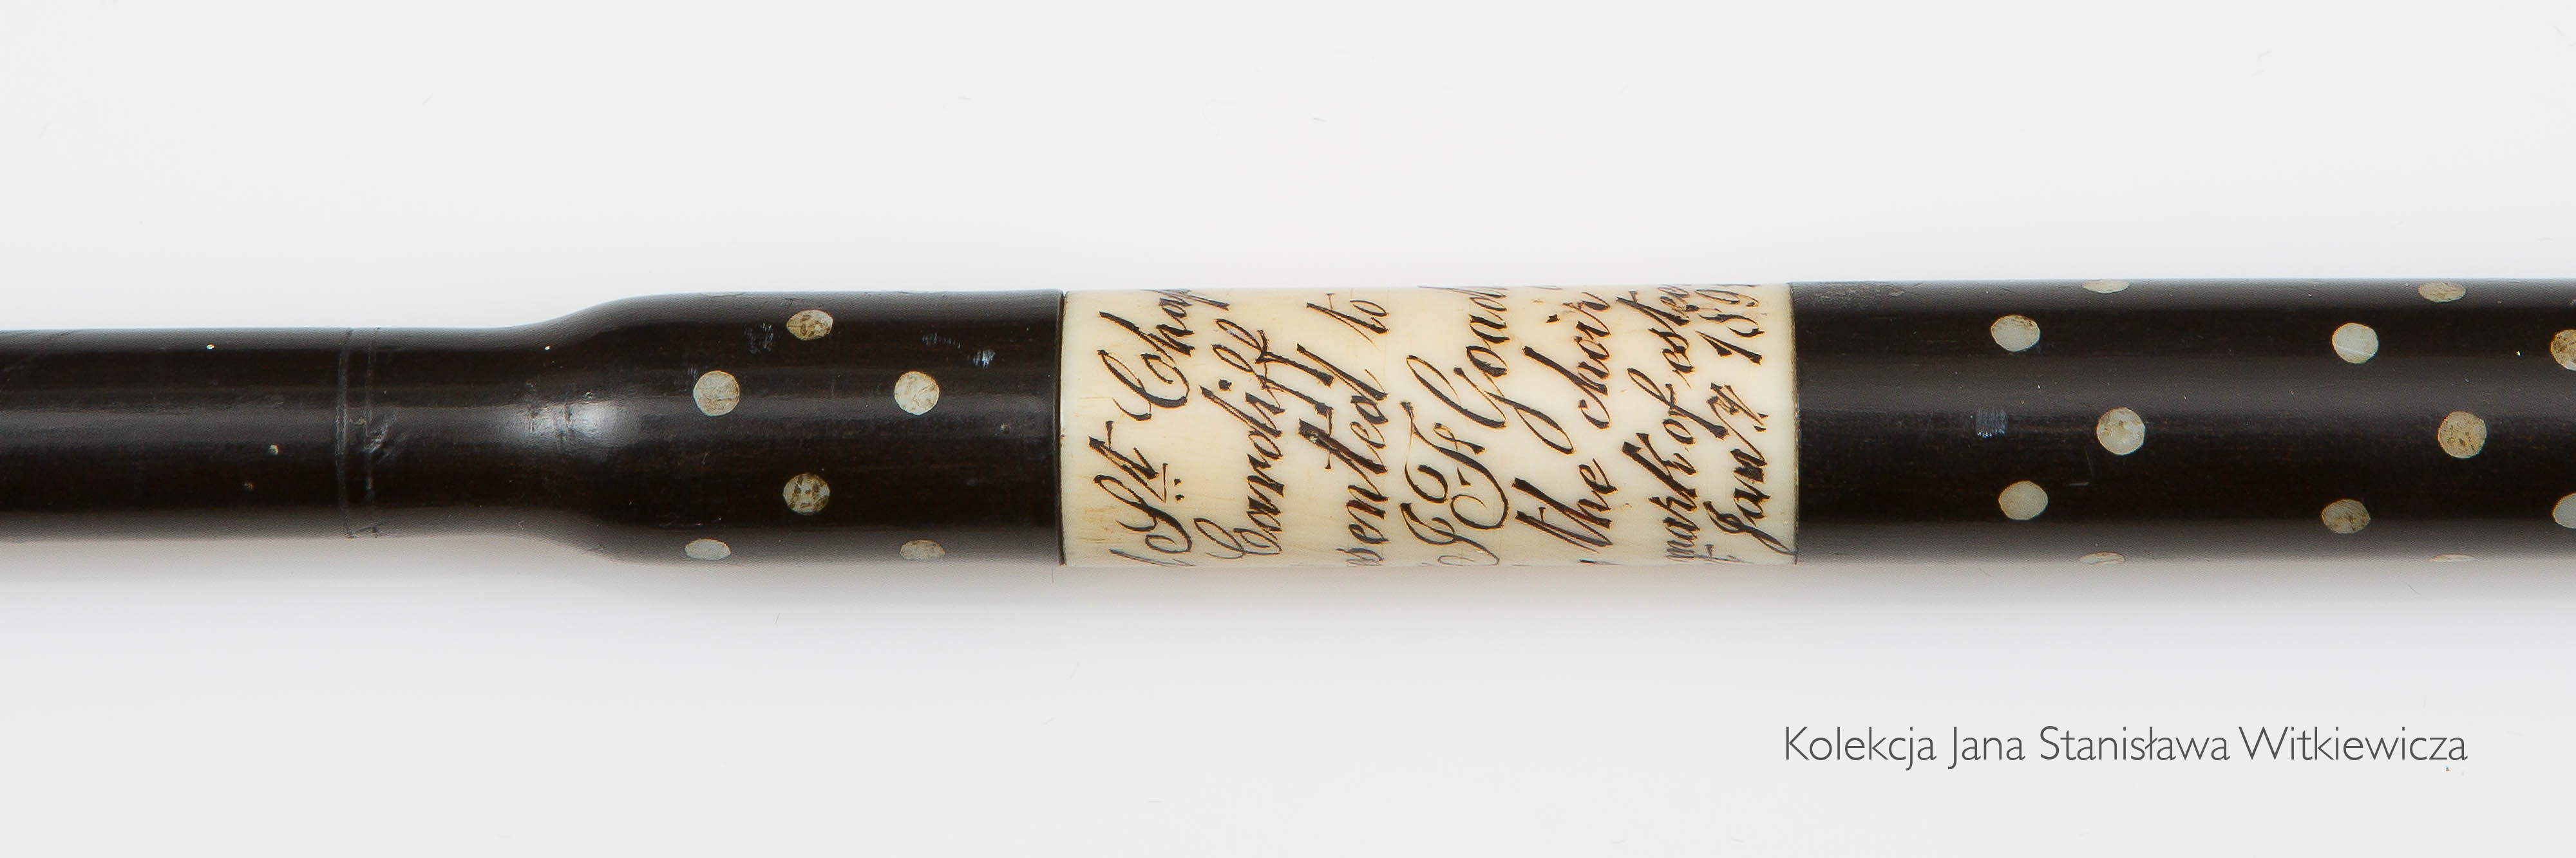 St Chap
Cardiff
sented to
J F Goud
the choir
mark of estee
Jan 7 189
Kolekcja Jana Stanisława Witkiewicza